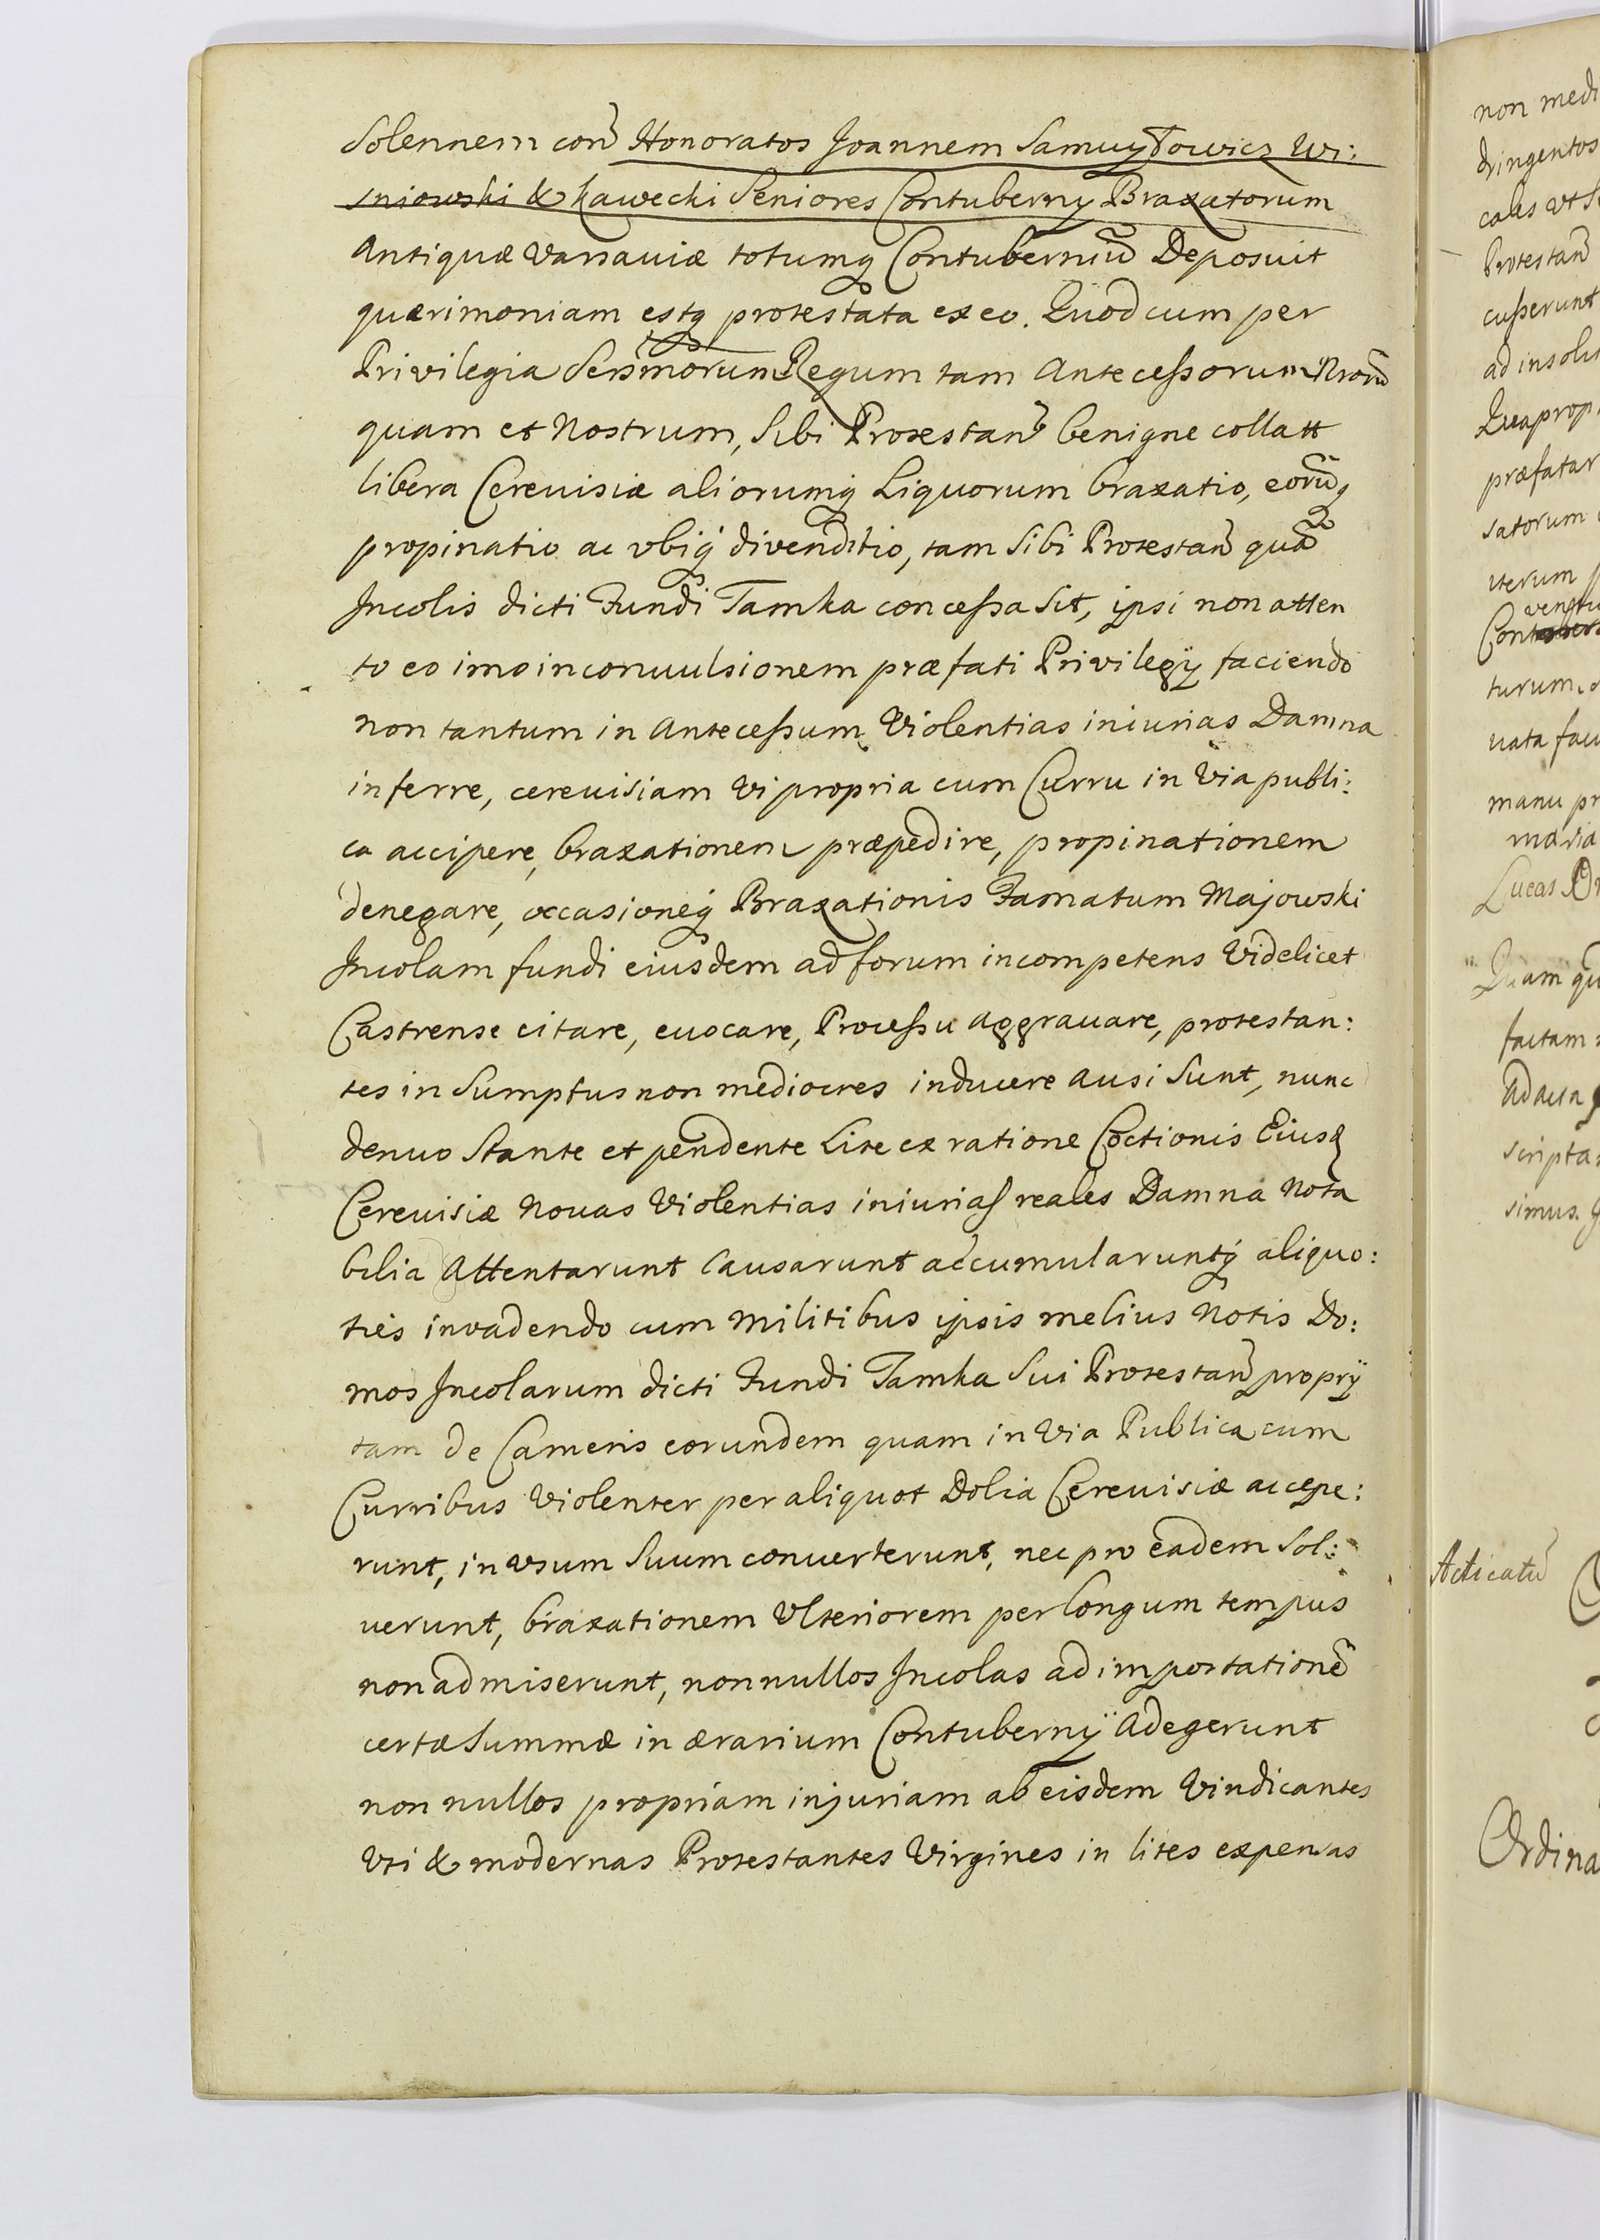 Solennem con͠ Honoratos Joannem Samuydowicz Wi:
sniowski & Kawecki Seniores Contubernÿ Braxatorum
Antiquæ Varsauiæ totumq Contuberniu͠ Deposuit
quærimoniam estq protestata ex eo. Quod cum per
Privilegia Sers͠morum Regum tam Antecessorum Nroru͠
quam et Nostrum, Sibi Protestan͠ benigne collatt
libera Cereuisiæ aliorumq Liquorum braxatio, eoru͠q
propinatio ac vbiq divenditio, tam Sibi Protestan͠ qua͠
Incolis dicti Fundi Tamka concessa Sit, ipsi non atten
to eo imo in conuulsionem præfati Privilegÿ faciendo
non tantum in Antecessum Violentias iniurias Damna
inferre, cereuisiam Vi propria cum Curru in Via publi:
ca accipere, braxationem præpedire, propinationem
denegare, occasioneq Braxationis Famatum Majowski
Incolam fundi eiusdem ad forum incompetens Videlicet
Castrense citare, euocare, Processu Aggrauare, protestan:
tes in Sumptus non mediocres inducere Ausi Sunt, nunc
denuo Stante et pendente Lite ex ratione Coctionis Eiusd
Cereuisiæ Nouas Violentias iniurias reales Damna Nota
bilia Attentarunt Causarunt accumularuntq aliquo:
ties invadendo cum Militibus ipsis melius Notis Do:
mos Incolarum dicti Fundi Tamka Sui Protestan͠ proprÿ
tam de Cameris eorundem quam in Via Publica cum
Curribus Violenter per aliquot Dolia Cereuisiæ accepe:
runt, in Vsum Suum conuerterunt, nec pro eadem Sol:
uerunt, braxationem Vlteriorem per longum tempus
non admiserunt, nonnullos Incolas ad importatione͠
certæ Summæ in ærarium Contubernÿ Adegerunt
non nullos propriam injuriam ab eisdem Vindicantes
Vti & modernas Protestantes Virgines in lites expensas
non medi
dringentos
Protestan͠
cusserunt
ad insolu
Quaprop
præfatar
satorum
iterum
turum
uata fau
manu pr
Lucas
Quam qu
factam
Ad acta
scripta
simus.
Acticatu͠
Ordina